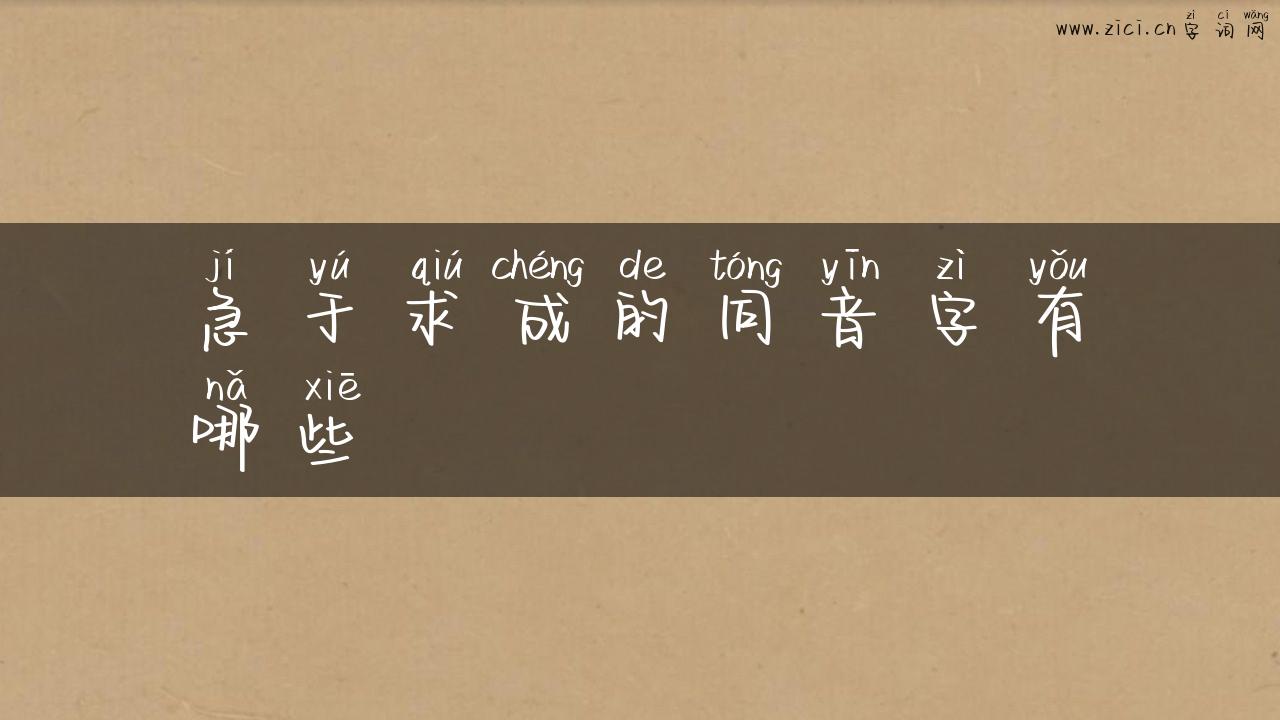 zì cí wǎng
www.zici.cn 字 词 网
jí yú qiú chéng de tóng yīn zì yǒu
急 于 求 成 的 同 音 字 有
nǎ xiē
哪 些